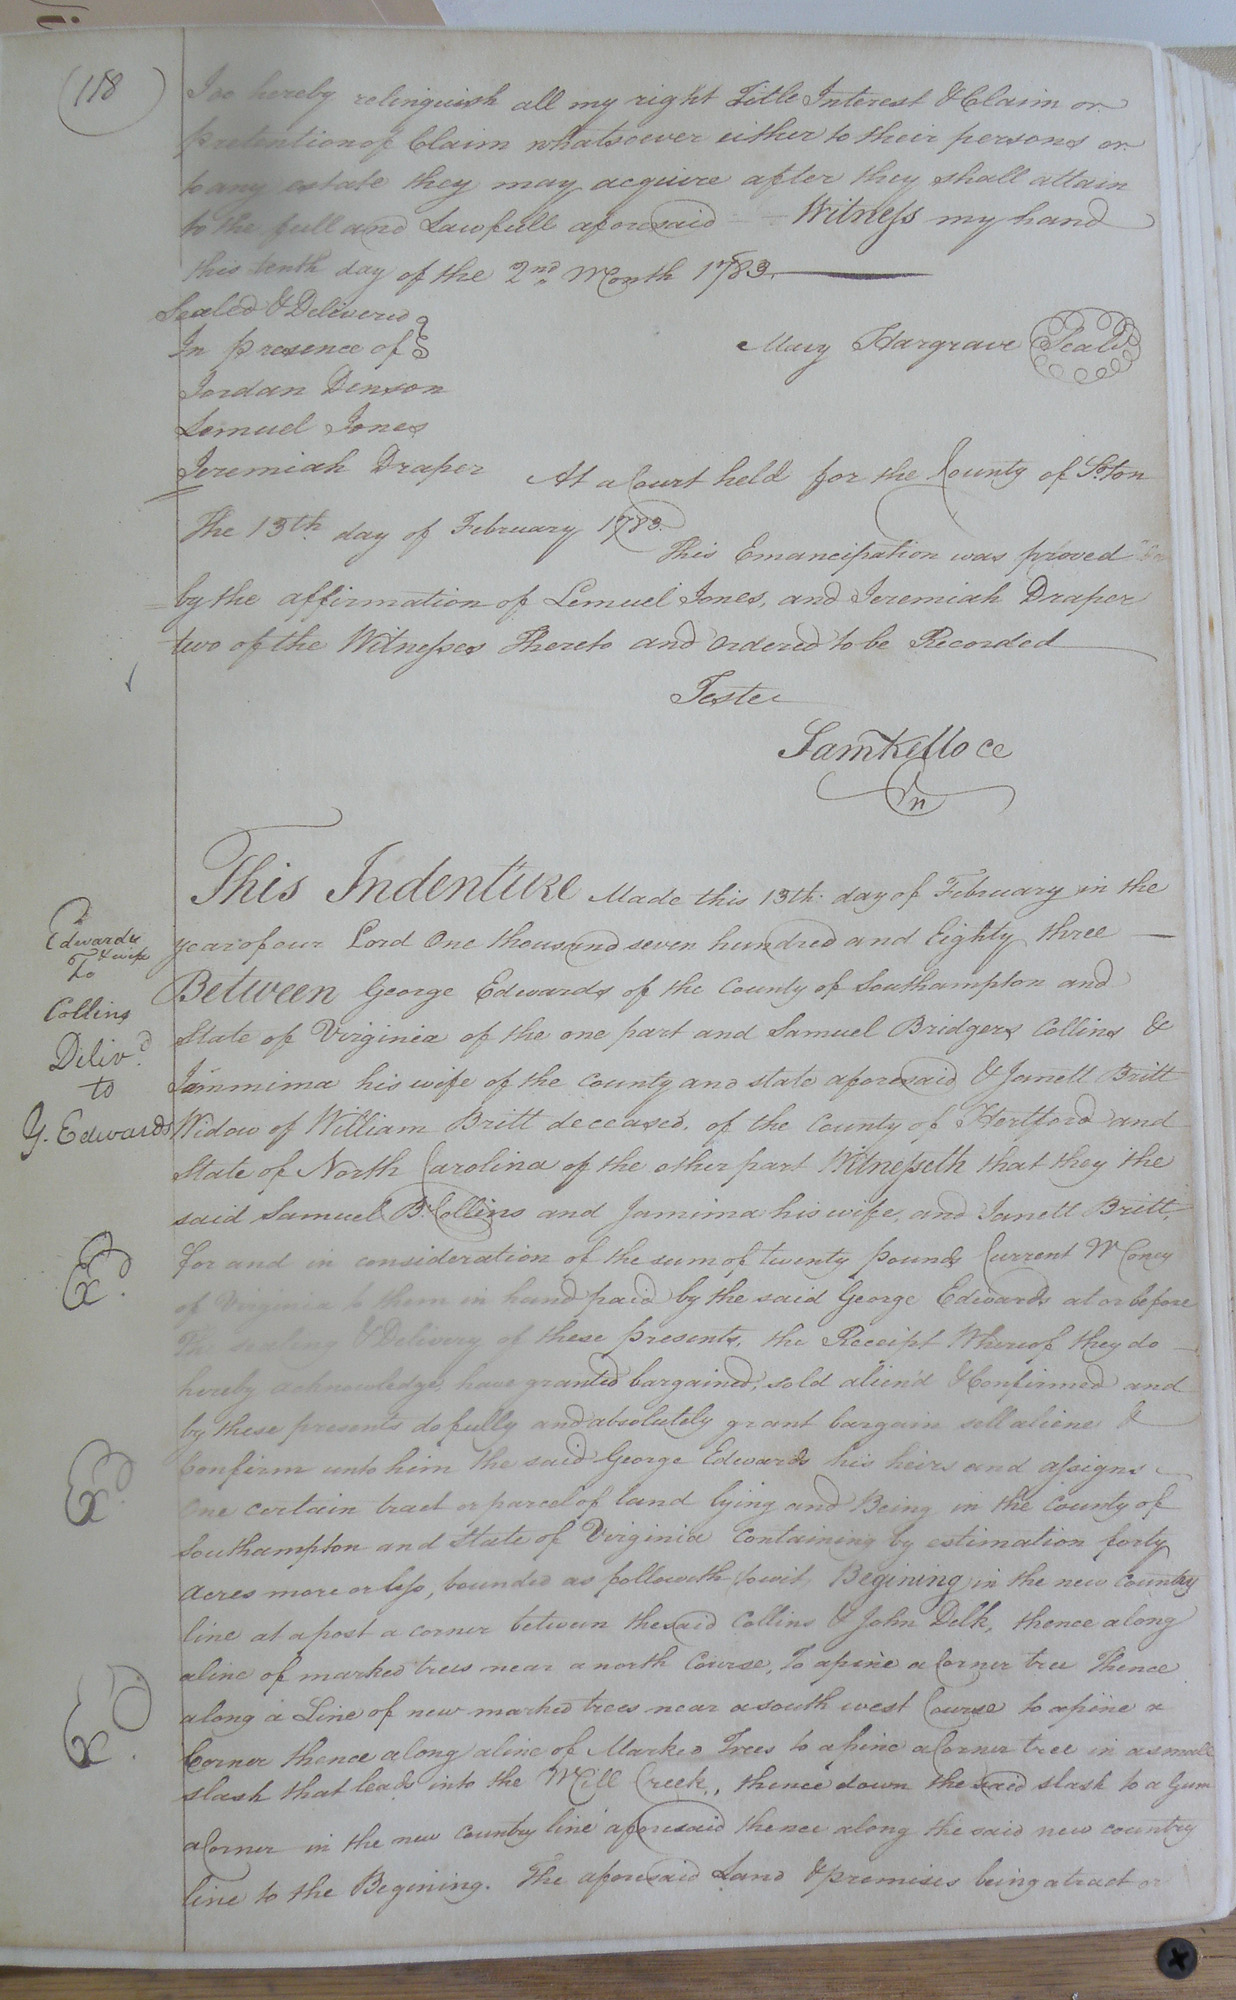 (118)
I do hereby relinquish all my right Title Interest & Claim or
pretention of Claim whatsoever either to their persons or
to any estate they may acquire after they shall attain
to the full and Lawfull aforesaid Witness my hand
this tenth day of the 2nd. Month 1783.
Sealed & Delivered
In presence of
Mary Hargrave Seal
Jordan Denson
Lemuel Jones
Jeremiah Draper
At a Court held for the County of So.ton
The 13th day of February 1783.
This Emancipation was proved
by the affirmation of Lemuel Jones, and Jeremiah Draper
two of the Witnesses Thereto and ordered to be Recorded
Teste
Sam Kello CC
This Indenture Made this 13th. day of February in the
year of our Lord One thousand seven hundred and Eighty three
Between George Edwards of the County of Southampton and
State of Virginia of the one part and Samuel Bridgers Collins &
Jammima his wife of the County and state aforesaid & Janell Britt
Widow of William Britt deceased, of the County of Hertford and
State of North Carolina of the other part Witnesseth that they the
said Samuel B. Collins and Jamima his wife, and Janell Britt,
for and in consideration of the sum of twenty pounds Current Money
of Virginia to them in hand paid by the said George Edwards at or before
the sealing & Delivery of these presents, the Receipt Whereof they do
hereby acknowledge, have granted bargained, sold alien'd & Confirmed and
by these presents do fully and absolutely grant bargain sell aliene &
Confirm unto him the said George Edwards his heirs and assigns
One certain tract or parcel of land lying and Being in the County of
Southampton and State of Virginia Containing by estimation forty
acres more or less, bounded as followeth towit, Begining in the new Country
line at a post a corner between the said Collins & John Delk, thence along
a line of marked trees near a north Course, To a pine a Corner tree Thence
along a Line of new marked trees near a south west Course to a pine a
Corner thence along a line of Marked Trees to a pine a Corner tree in a small
slash that leads into the Mill Creek, thence down the said slash to a Gum
a Corner in the new Country line aforesaid thence along the said new country
line to the Begining. The aforesaid Land & premises being a tract or
Edwards
& wife
To
Collins
Deliv.d
to
G. Edwards
Ex.
Ex.
Ex.